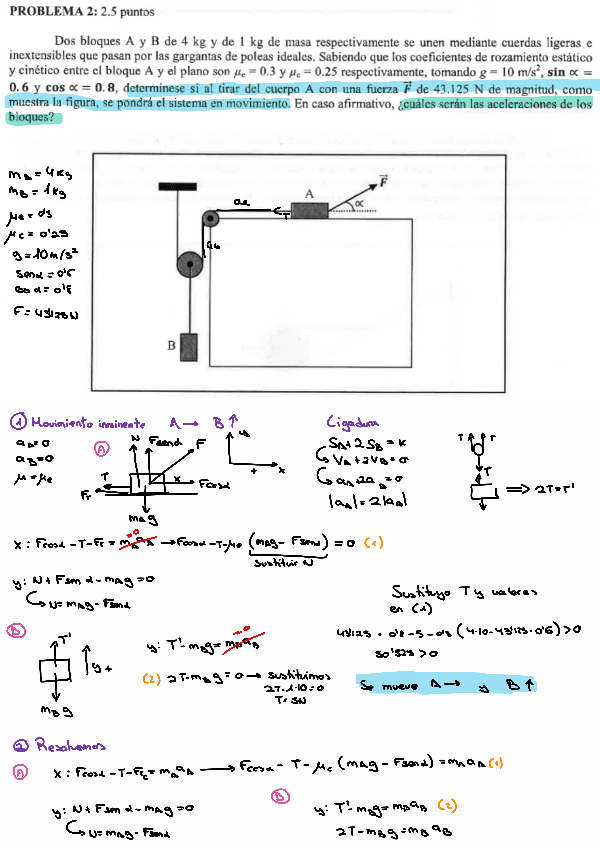 PROBLEMA 2: 2.5 puntos
Dos bloques A y B de 4 kg y de 1 kg de masa respectivamente se unen mediante cuerdas ligeras e
inextensibles que pasan por las gargantas de poleas ideales. Sabiendo que los coeficientes de rozamiento estático
y cinético entre el bloque A y el plano son μe = 0.3 y μc = 0.25 respectivamente, tomando g = 10 m/s², sin ∝ =
0.6 y cos ∝ = 0.8, determínese si al tirar del cuerpo A con una fuerza F⃗ de 43.125 N de magnitud, como
muestra la figura, se pondrá el sistema en movimiento. En caso afirmativo, ¿cuáles serán las aceleraciones de los
bloques?
mA = 4 Kg
mB = 1 Kg
μe = 0'3
μc = 0'25
g = 10 m/s²
senα = 0'6
cosα = 0'8
F = 43'125 N
A
F⃗
α
T
B
① Movimiento inminente A → B ↑
aA = 0
aB = 0
μ = μe
Ⓐ
N
Fsenα
F
T
Fr
x
Fcosα
mAg
y
+
x
Ligadura
SA + 2SB = K
VA + 2VB = 0
aA + 2aB = 0
|aA| = 2|aB|
T T
T'
⇒ 2T = T'
x: Fcosα - T - Fr = mAaA =0 → Fcosα - T - μe (mAg - Fsenα) = 0 (1)
sustituir N
y: N + Fsenα - mAg = 0
N = mAg - Fsenα
Sustituyo T y valores
en (1)
43'125 · 0'8 - 5 - 0'3 (4·10 - 43'125·0'6) > 0
30'825 > 0
Ⓑ
T'
y +
mBg
y: T' - mBg = mBaB =0
(2) 2T - mBg = 0 → sustituimos
2T - 1·10 = 0
T = 5N
Se mueve A → y B ↑
② Resolvemos
Ⓐ x: Fcosα - T - Frc = mAaA → Fcosα - T - μc (mAg - Fsenα) = mAaA (1)
y: N + Fsenα - mAg = 0
N = mAg - Fsenα
Ⓑ
y: T' - mBg = mBaB (2)
2T - mBg = mBaB